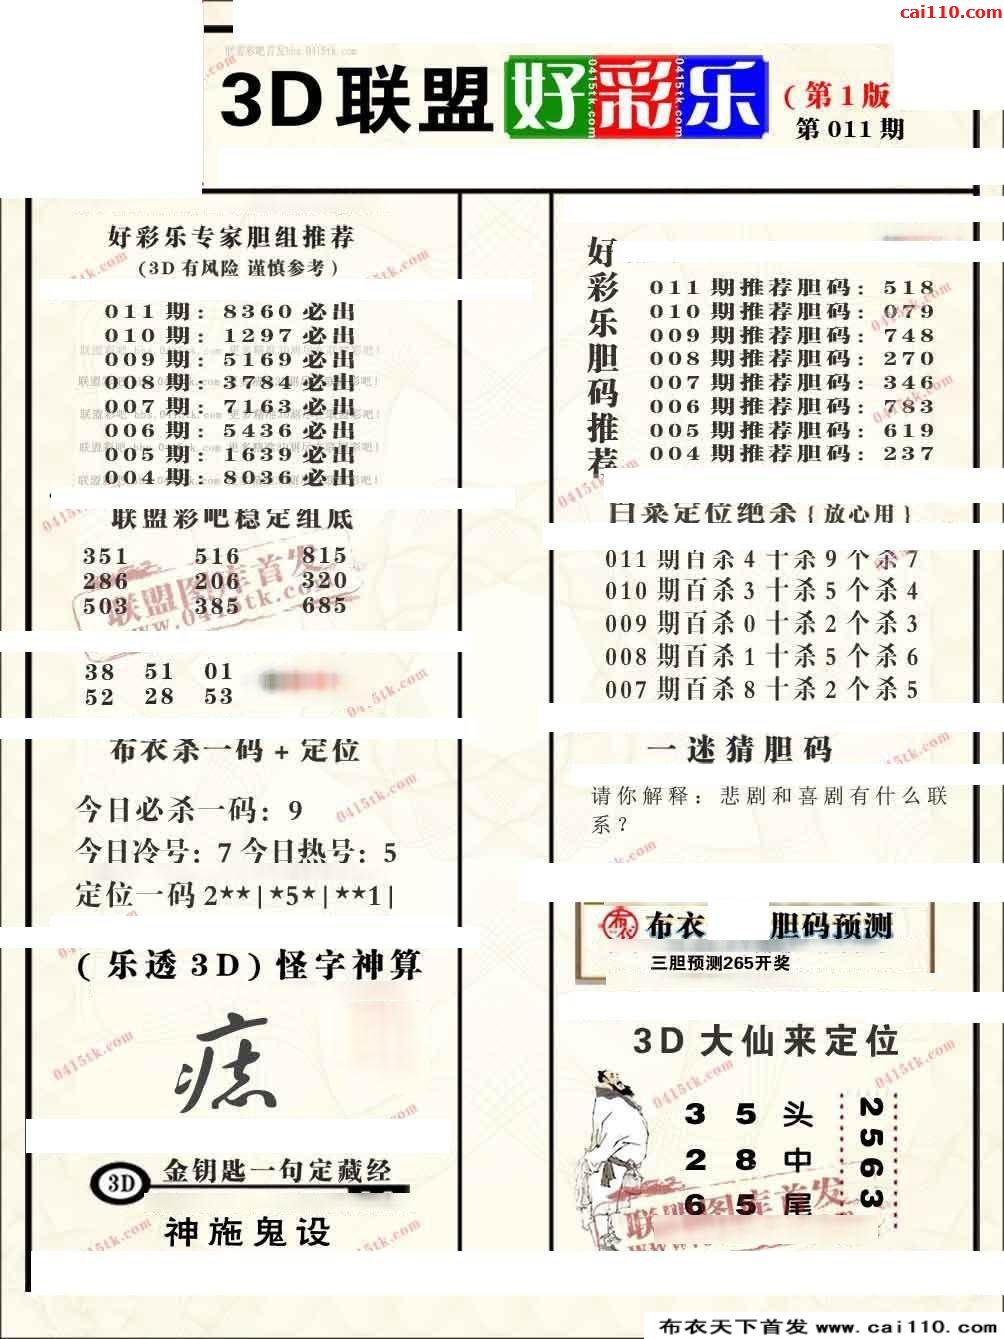 cai110.com
3D联盟好彩乐
(第1版
第011期
好彩乐专家胆组推荐
(3D有风险 谨慎参考)
011期: 8360必出
010期: 1297必出
009期: 5169必出
008期: 3784必出
007期: 7163必出
006期: 5436必出
005期: 1639必出
004期: 8036必出
联盟彩吧稳定组底
351 516 815
286 206 320
503 385 685
联盟图库首发
www.0415tk.com
38 51 01
52 28 53
布衣杀一码+定位
今日必杀一码: 9
今日冷号: 7 今日热号: 5
定位一码 2**|*5*|**1|
(乐透3D)怪字神算
痣
3D 金钥匙一句定藏经
神施鬼设
好彩乐胆码推荐
011期推荐胆码: 518
010期推荐胆码: 079
009期推荐胆码: 748
008期推荐胆码: 270
007期推荐胆码: 346
006期推荐胆码: 783
005期推荐胆码: 619
004期推荐胆码: 237
白菜定位绝杀{放心用}
011期百杀4十杀9个杀7
010期百杀3十杀5个杀4
009期百杀0十杀2个杀3
008期百杀1十杀5个杀6
007期百杀8十杀2个杀5
一迷猜胆码
请你解释: 悲剧和喜剧有什么联
系?
布衣 布衣 胆码预测
三胆预测265开奖
3D大仙来定位
3 5 头
2 8 中
6 5 尾
2563
0415tk.com
布衣天下首发 www.cai110.com